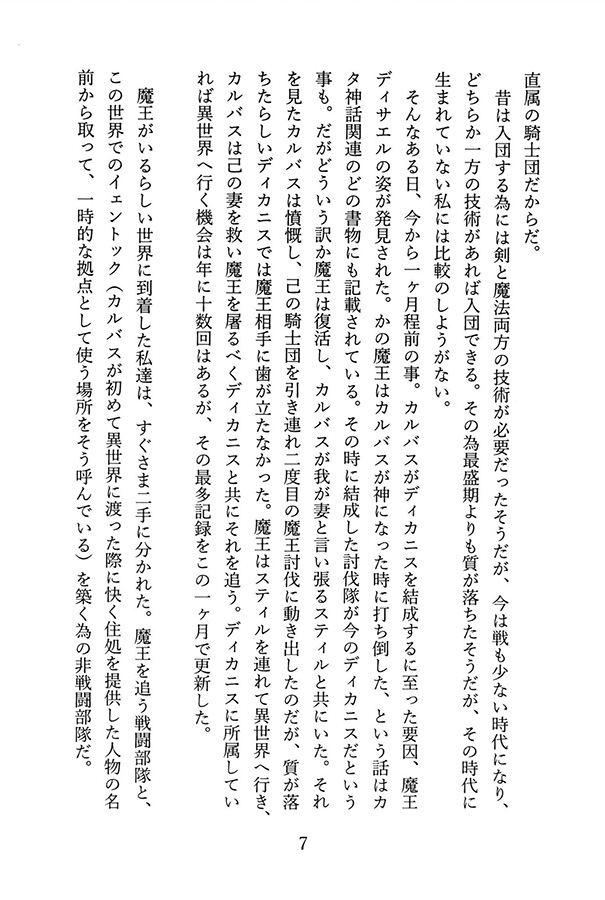 直属の騎士団だからだ。
　昔は入団する為には剣と魔法両方の技術が必要だったそうだが、今は戦も少ない時代になり、
どちらか一方の技術があれば入団できる。その為最盛期よりも質が落ちたそうだが、その時代に
生まれていない私には比較のしようがない。
　そんなある日、今から一ヶ月程前の事。カルバスがディカニスを結成するに至った要因、魔王
ディサエルの姿が発見された。かの魔王はカルバスが神になった時に打ち倒した、という話はカ
タ神話関連のどの書物にも記載されている。その時に結成した討伐隊が今のディカニスだという
事も。だがどういう訳か魔王は復活し、カルバスが我が妻と言い張るスティルと共にいた。それ
を見たカルバスは憤慨し、己の騎士団を引き連れ二度目の魔王討伐に動き出したのだが、質が落
ちたらしいディカニスでは魔王相手に歯が立たなかった。魔王はスティルを連れて異世界へ行き、
カルバスは己の妻を救い魔王を屠るべくディカニスと共にそれを追う。ディカニスに所属してい
れば異世界へ行く機会は年に十数回はあるが、その最多記録をこの一ヶ月で更新した。
　魔王がいるらしい世界に到着した私達は、すぐさま二手に分かれた。魔王を追う戦闘部隊と、
この世界でのイェントック（カルバスが初めて異世界に渡った際に快く住処を提供した人物の名
前から取って、一時的な拠点として使う場所をそう呼んでいる）を築く為の非戦闘部隊だ。
7